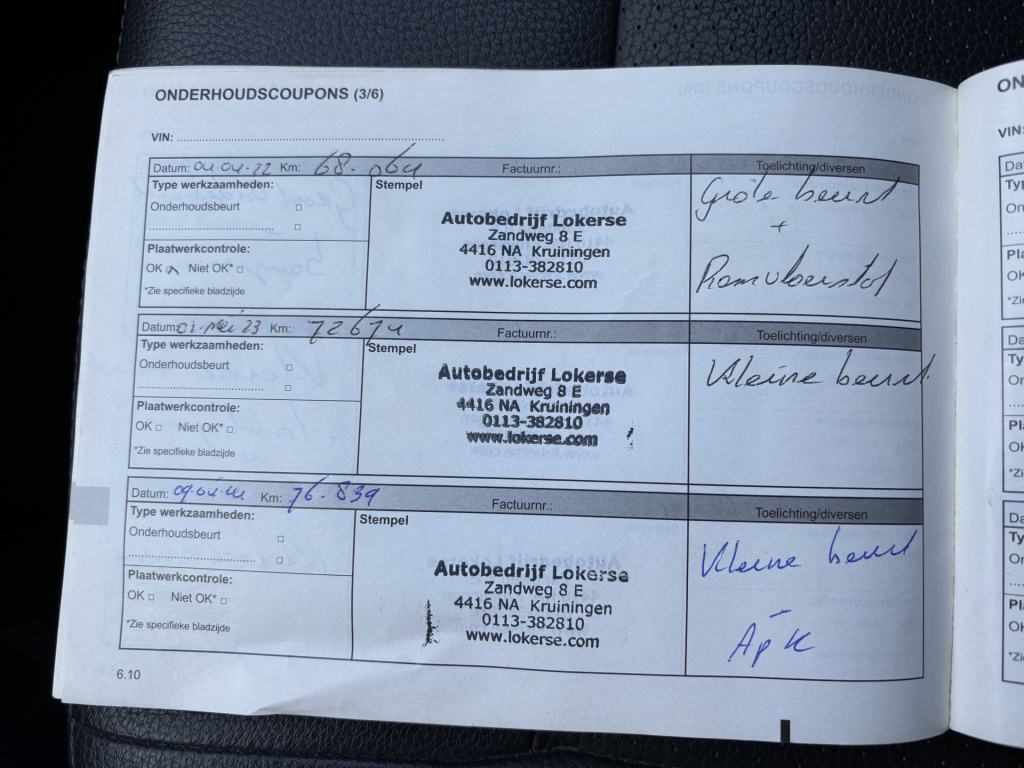 ONDERHOUDSCOUPONS (3/6)
VIN:
Datum: 04-04-22 Km: 68-064 Factuurnr.: Toelichting/diversen
Type werkzaamheden:
Stempel
Onderhoudsbeurt
Plaatwerkcontrole:
OK Niet OK*
*Zie specifieke bladzijde
Autobedrijf Lokerse
Zandweg 8 E
4416 NA Kruiningen
0113-382810
www.lokerse.com
Grote beurt
+
Remvloeistof
Datum: 01-Mei 23 Km: 72674 Factuurnr.: Toelichting/diversen
Type werkzaamheden:
Stempel
Onderhoudsbeurt
Plaatwerkcontrole:
OK Niet OK*
*Zie specifieke bladzijde
Autobedrijf Lokerse
Zandweg 8 E
4416 NA Kruiningen
0113-382810
www.lokerse.com
Kleine beurt
Datum: Km: 76-839 Factuurnr.: Toelichting/diversen
Type werkzaamheden:
Stempel
Onderhoudsbeurt
Plaatwerkcontrole:
OK Niet OK*
*Zie specifieke bladzijde
Autobedrijf Lokerse
Zandweg 8 E
4416 NA Kruiningen
0113-382810
www.lokerse.com
Kleine beurt
-
Apk
6.10
VIN: